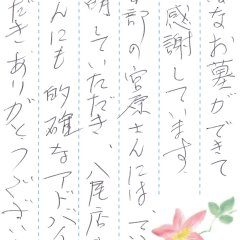 なお墓ができて
感謝しています。
部の宮原さんには
明していただき、八尾店
んにも的確なアドバイ
だきありがとうござい